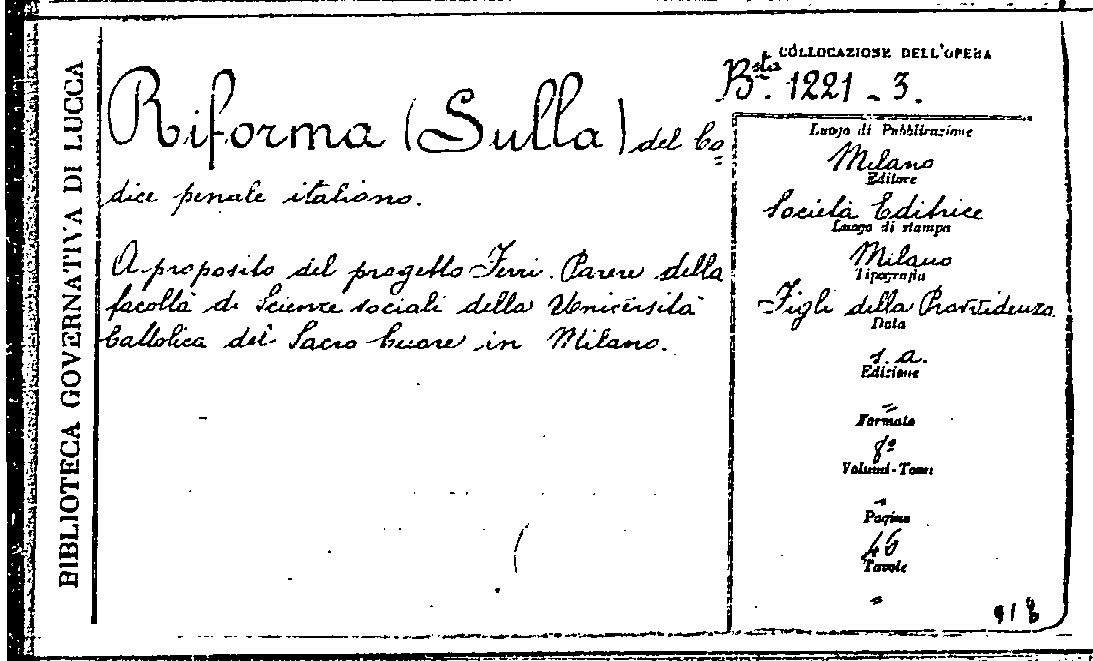 BIBLIOTECA GOVERNATIVA DI LUCCA
COLLOCAZIONE DELL'OPERA
Bsta. 1221 - 3.
Riforma (Sulla) del Co=
dice penale italiano.
A proposito del progetto Ferri. Parere della
facoltà di Scienze sociali della Università
Cattolica del Sacro Cuore in Milano.
Luogo di Pubblicazione
Milano
Editore
Società Editrice
Luogo di stampa
Milano
Tipografia
Figli della Provvidenza
Data
s. a.
Edizione
"
Formato
8º
Volumi-Tomi
"
Pagine
46
Tavole
"